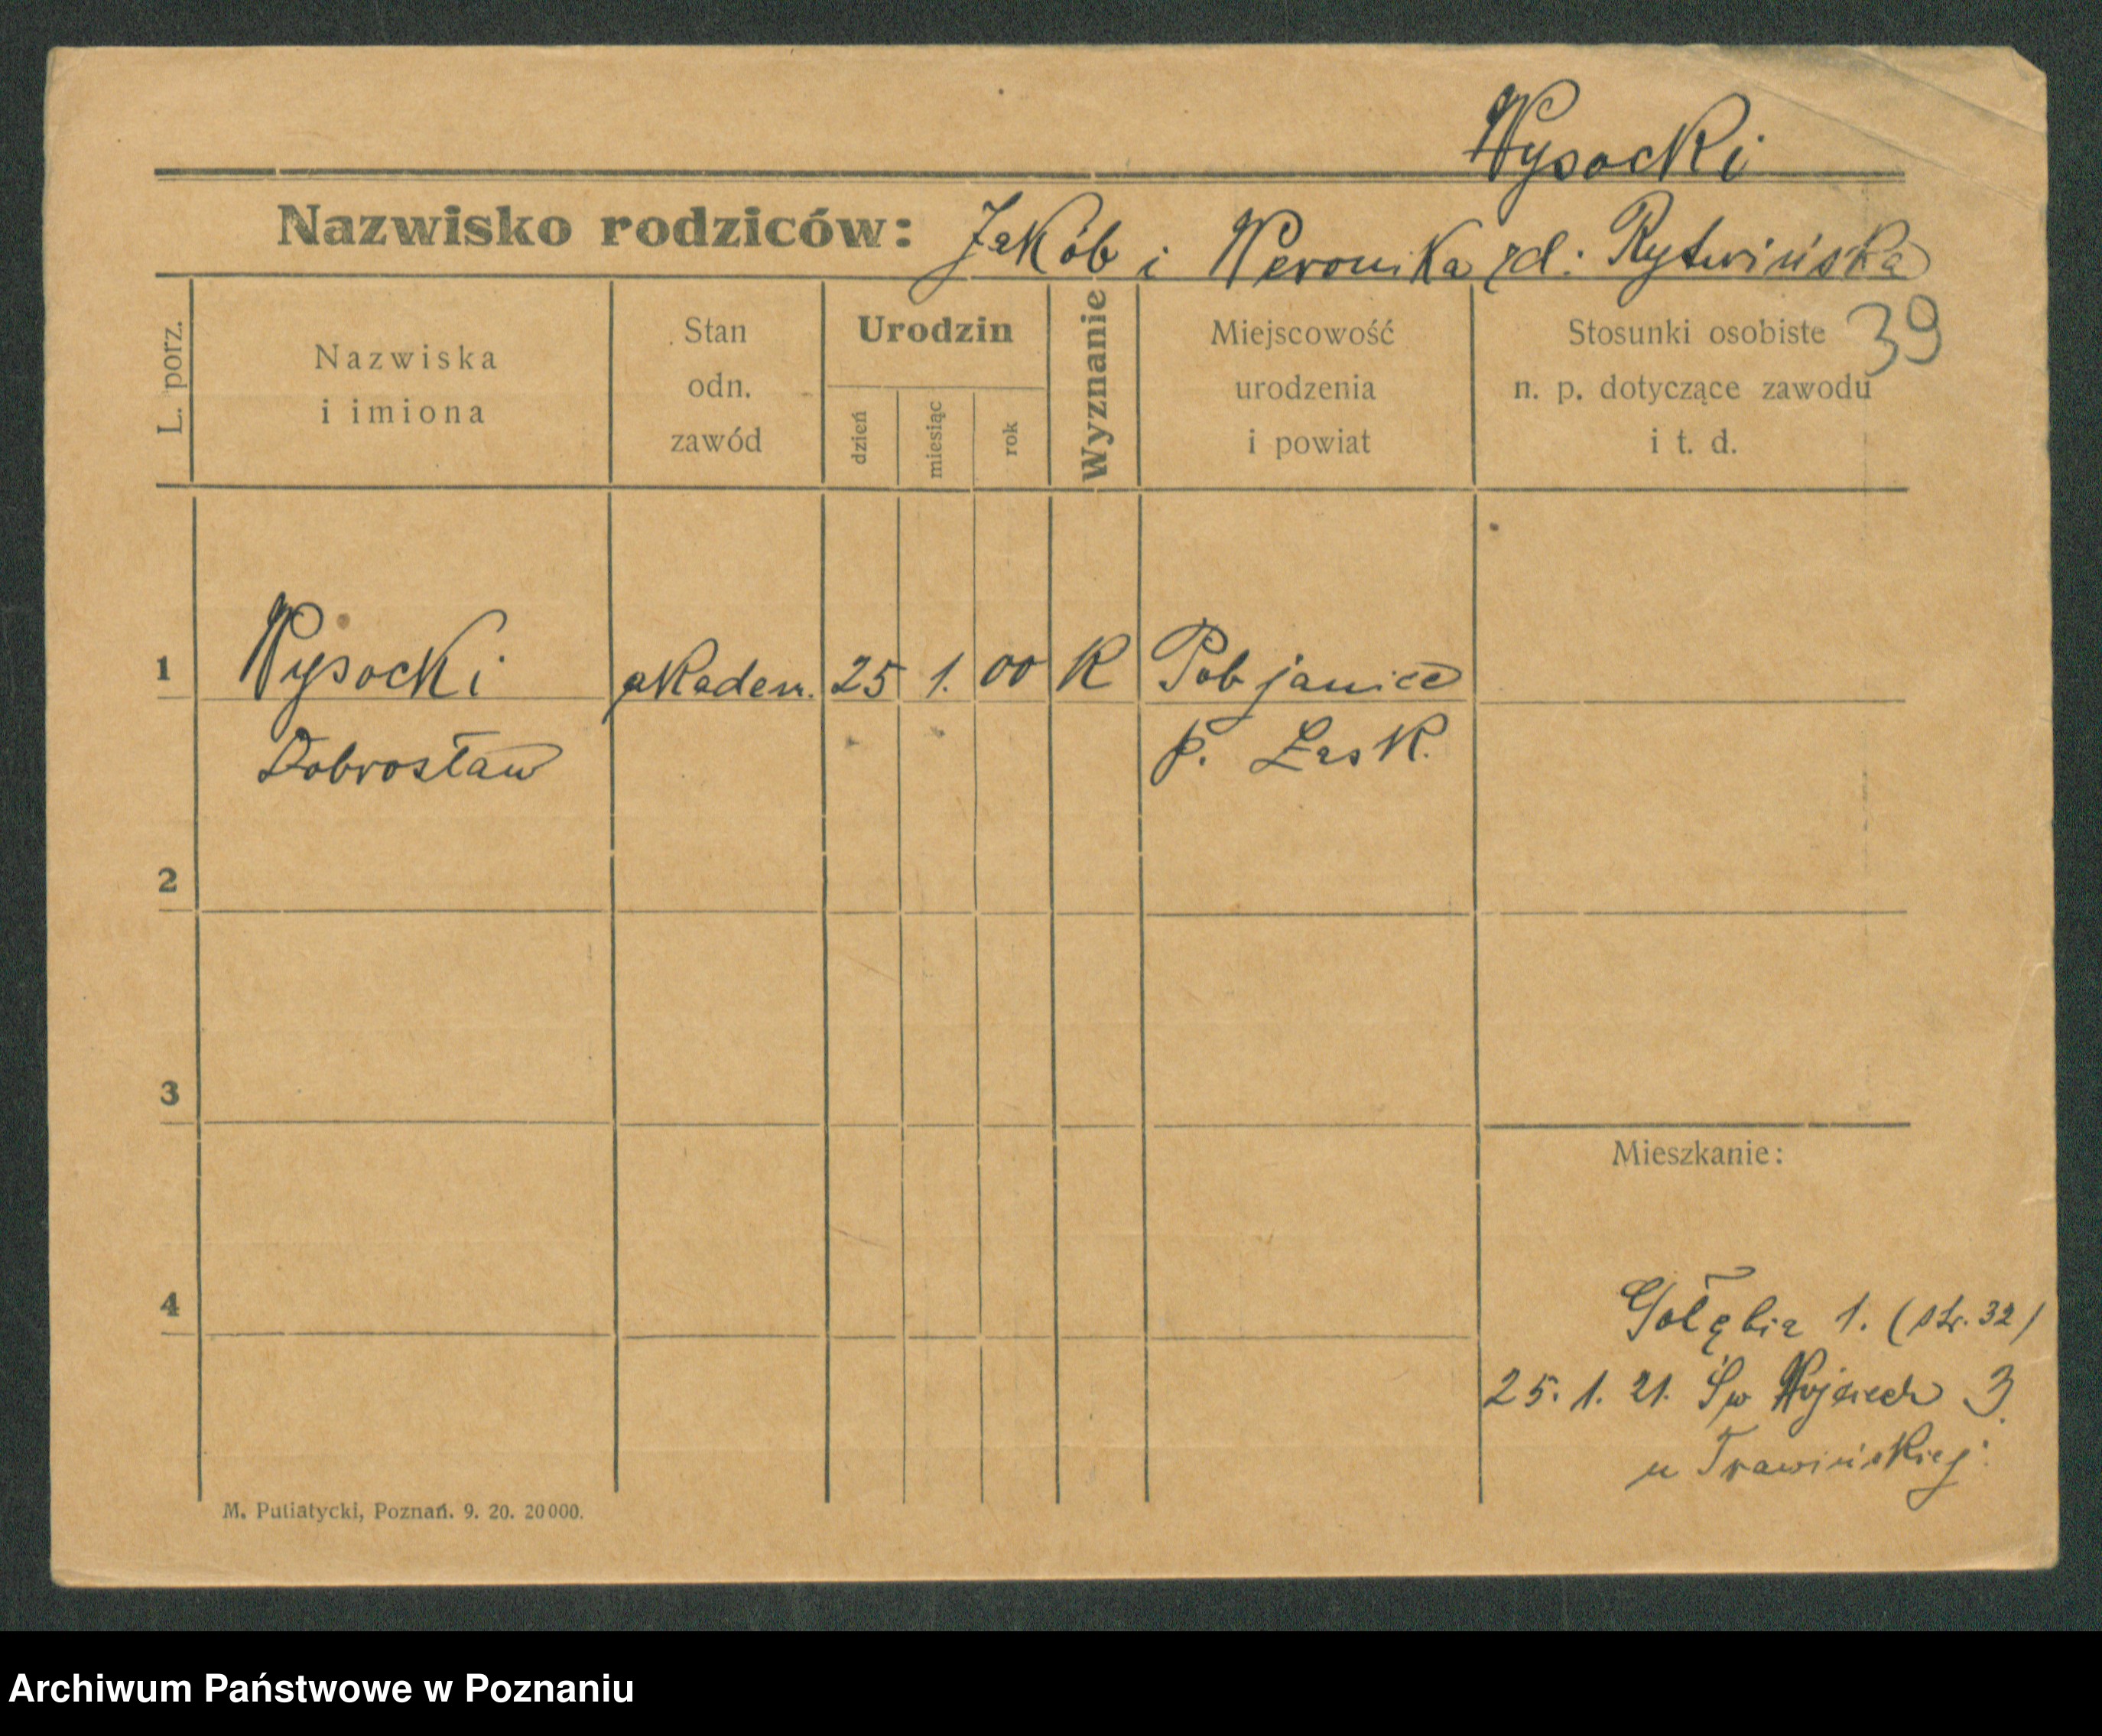 Wysocki
Nazwisko rodziców: Jakób i Weronika zd: Rytwińska
39
L. porz.
Nazwiska
i imiona
Stan
odn.
zawód
Urodzin
dzień
miesiąc
rok
Wyznanie
Miejscowość
urodzenia
i powiat
Stosunki osobiste
n. p. dotyczące zawodu
i t. d.
1 Wysocki akadem. 25 1. 00 K Pabjanice
Dobrosław p. Łask.
2
3
Mieszkanie:
4
Gołębia 1. (str. 32)
25. 1. 21. Św Wojciech 3
u Trawińskiej
M. Putiatycki, Poznań. 9. 20. 20000.
Archiwum Państwowe w Poznaniu